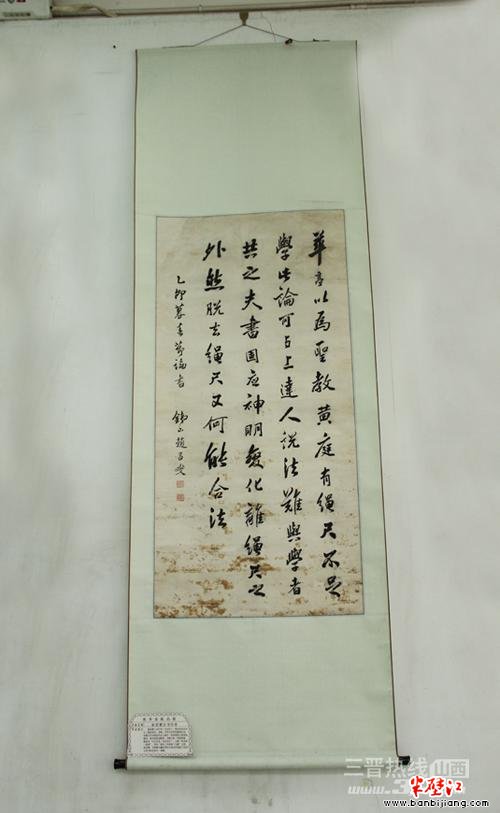 華亭以為聖教黃庭有繩尺不足
學此論可与上達人說法難與學者
共之夫書固应神明變化離繩尺之
外然脫去繩尺又何能合法
乙卯暮春節論書
鉄山趙昌燮
三晋热线山西
半壁江
www.banbijiang.com